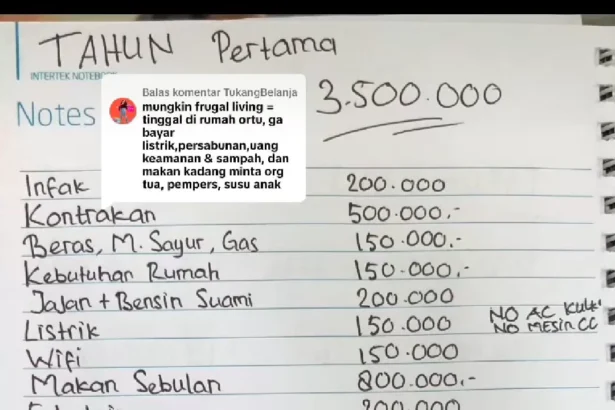 TAHUN Pertama
INTERTEK NOTEB
Balas komentar TukangBelanja
mungkin frugal living =
tinggal di rumah ortu, ga
bayar
listrik,persabunan,uang
keamanan & sampah, dan
makan kadang minta org
tua, pempers, susu anak
3.500.000
Notes
Infak 200.000
Kontrakan 500.000,-
Beras, M. Sayur, Gas 150.000,-
Kebutuhan Rumah 150.000,-
Jalan + Bensin Suami 200.000
NO AC
Listrik 150.000 NO MESIN CC
Wifi 150.000
Makan Sebulan 800.000,-
200.000